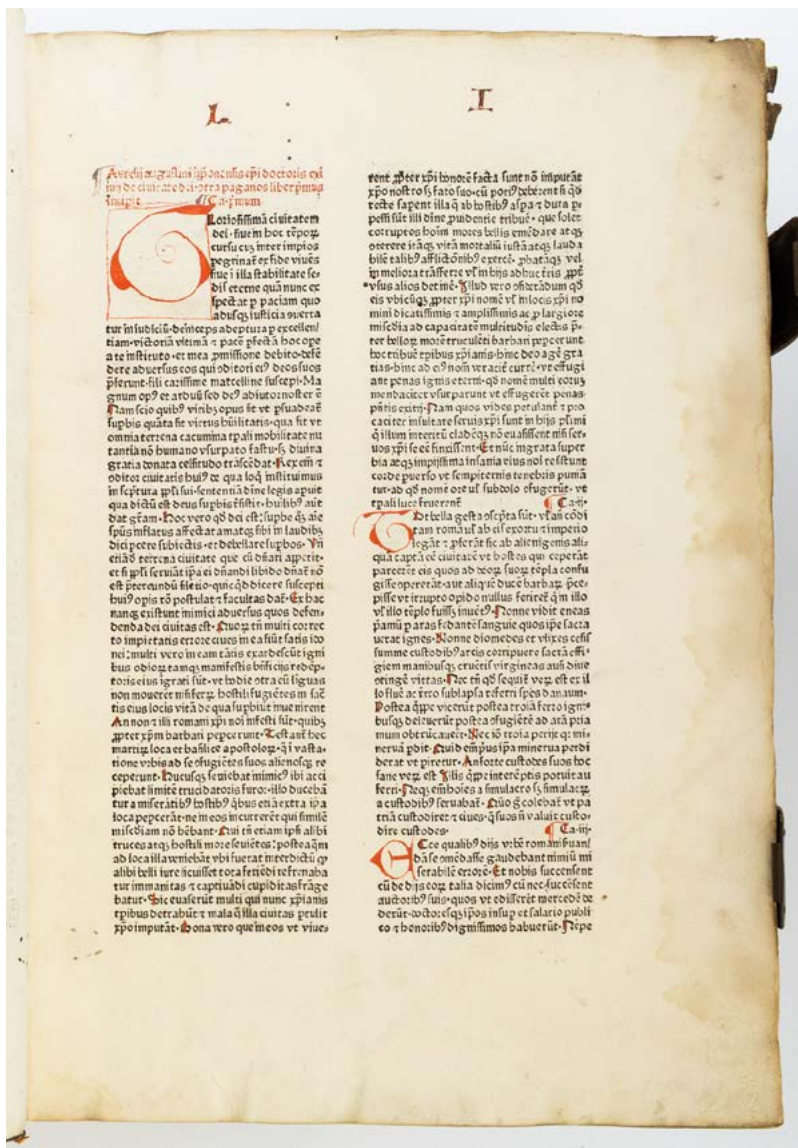 L I
Aurelij augustini ypponensis epi doctoris exi
mij de ciuitate dei ɔtra paganos liber pmus
incipit Ca·pmum
Gloriosissimā ciuitatem
dei · siue in hoc tēpoꝝ
cursu cuȝ inter impios
pegrinat̄ ex fide viuēs
siue ī illa stabilitate se⸗
dis eterne quā nunc ex
spectat p paciam quo
adusqȝ iusticia ɔuerta
tur in iudiciū·deinceps adeptura p excellen/
tiam·victoriā vltimā ⁊ pacē pfectā hoc ope
a te instituto·et mea ꝓmissione debito·defē
dere aduersus eos qui ɔditori eiꝰ deos suos
p̄ferunt·fili carissime marcelline suscepi·Ma
gnum opꝰ et arduū sed deꝰ adiutor noster ē
Nam scio quibꝰ viribȝ opus sit vt psuadeat̄
supbis quāta sit virtus hūilitatis·qua fit vt
omnia terrena cacumina tpali mobilitate nu
tantia nō humano vsurpato fastu·sȝ diuina
gratia donata celsitudo trāscēdat·Rex em̄ ⁊
ɔditor ciuitatis huiꝰ de qua loqͥ instituimus
in sc̄ptura ppl̄i sui·sententiā diue legis apuit
qua dictū est deus supbis r̄sistit·hūilibꝰ aūt
dat gr̄am·Hoc vero qd̄ dei est:supbe qȝ aīe
sp̄us inflatus affectat amatqȝ sibi in laudibȝ
dici pcere subiectis·et debellare supbos·Vn̄
etiā de terrena ciuitate que cū dn̄ari appetit·
et si ppl̄i seruiāt ip̄a ei dn̄andi libido dn̄at̄ nō
est p̄tereundū silētio·quicqd̄ dicere suscepti
huiꝰ opis rō postulat ⁊ facultas dat̄·Ex hac
nanqȝ existunt inimici aduersus quos defen⸗
denda dei ciuitas est·Quoꝝ tn̄ multi correc
to impietatis errore ciues in ea fiūt satis ido
nei:multi vero in eam tātis exardescūt igni
bus odioꝝ tamqȝ manifestis bn̄ficijs redēp⸗
toris eius īgrati sūt·vt hodie ɔtra eū liguas
non mouerēt nisi ferrū hostili fugiētes in sac̄
tis eius locis vitā de qua supbiūt inuenirent
An non ⁊ illi romani xp̄i noī infesti sūt·quibȝ
ꝓpter xp̄m barbari pepcerunt·Testant̄ hec
martiꝝ loca et basilice apostoloꝝ·q̄ ī vasta⸗
tione vrbis ad se ɔfugiētes suos alienosqȝ re
ceperunt·Hucusqȝ seuiebat inimicꝰ ibi acci
piebat limitē trucidatoris furor·illo ducebā
tur a miseratibꝰ hostibꝰ qͥbus etiā extra ip̄a
loca pepcerāt·ne in eos incurrerēt qui similē
misc̄diam nō hēbant·Qui tn̄ etiam ip̄i alibi
truces atqȝ hostili more seuiētes:postea qͣm
ad loca illa veniebāt vbi fuerat interdictū qͩ
alibi belli iure licuisset tota feriēdi refrenaba
tur immanitas ⁊ captiuādi cupiditas frāge
batur·Sic euaserūt multi qui nunc xp̄ianis
tpibus detrahūt ⁊ mala q̄ illa ciuitas ptulit
xp̄o imputāt·Bona vero que in eos vt viue⸗
rent ꝓpter xp̄i honorē facta sunt nō imputāt
xp̄o nostro sȝ fato suo·cū potiꝰ deberent si qd̄
recte sapent illa q̄ ab hostibꝰ aspa ⁊ dura p
pessi sūt illi diuine ꝓuidentie tribue᷑·que solet
corruptos hoīm mores bellis emēdare atqȝ
ɔterere itaqȝ vitā mortaliū iustā atqȝ lauda
bilē talibꝰ afflictōnibꝰ exerce᷑·ꝓbatāqȝ vel
in meliora trāsferre vl̄ in hijs adhuc tr̄is ꝓpt̄
vsus alios detine᷑·Illud vero ɔsiderādum qd̄
eis vbicūqȝ ꝓpter xp̄i nomē vl̄ in locis xp̄i no
mini dicatissimis ⁊ amplissimis ac p largiore
misc̄dia ad capacitatē multitudīs electis p̄⸗
ter belloꝝ morē truculēti barbari pepcerunt·
hoc tribue᷑ tpibus xp̄ianis·hinc deo age᷑ gra
tias·hinc ad eiꝰ nom̄ veraciter curre᷑·vt effugi
ant penas ignis eterni·qd̄ nomē multi eoruȝ
mendaciter vsurparunt vt effugerēt penas
pn̄tis exitij·Nam quos vides petulant̄ ⁊ pro
caciter insultare seruis xp̄i sunt in hijs pl̄imi
q̄ illum interitū cladēqȝ nō euasissent nisi ser⸗
uos xp̄i se eē finxissent·Et nūc ingrata super
bia atqȝ impijssima insania eius noī resistunt
corde puerso vt sempiternis tenebris puniā
tur·ad qd̄ nomē ore vl̄ subdolo ɔfugerūt·vt
tpali luce fruerent̄ Ca·ij·
Tot bella gesta ɔscpta sūt·vl̄ an̄ cōdi
tam romā vl̄ ab eiꝰ exortu ⁊ imperio
legāt ⁊ pferāt sic ab alienigenis ali⸗
quā captā eē ciuitatē vt hostes qui ceperāt
parcerēt eis quos ad deoꝝ suoꝝ tēpla confu
gisse ɔpererāt·aut aliqͦȝ ducē barbaꝝ p̄ce⸗
pisse vt irrupto opido nullus ferirēt̄ qͥ in illo
vl̄ illo tēplo fuissȝ inuētꝰ·Nonne vidit eneas
pͥamū p aras fedantē sanguie quos ip̄e sacra
uerat ignes·Nonne diomedes et vlixes cesis
summe custodibꝰ arcis corripuere sacrā effi⸗
giem manibusqȝ cruētis virgineas ausi diue
ɔtingē vittas·Nec tn̄ qd̄ sequit̄ veꝝ est ex il
lo fluē ac retro sublapsa referri spes danaum·
Postea qͥppe vicerūt postea troiā ferro igni⸗
busqȝ deleuerūt postea ɔfugiētē ad arā pria
mum obtrūcauerūt·Nec iō troia perijt qͥ mi⸗
neruā pdit·Quid em̄ pͥus ip̄a minerua perdi
derat vt piret ur·An forte custodes suos hoc
sane veꝝ est Illis qͥppe interēptis potuit au
ferri·Neqȝ em̄ hoīes a simulacro sȝ simulacꝝ
a custodibꝰ seruabat̄·Quō g̊ colebat̄ vt pa
triā custodiret ⁊ ciues·q̄ suos n̄ valuit custo⸗
dire custodes· Ca·iij·
Ecce qualibꝰ dijs vrbē romani buan/
dā se ɔmēdasse gaudebant nimiū mi
serabilē errorē·Et nobis succensent
cū de dijs eoꝝ talia dicimꝰ cū nec succēsent
auctoribꝰ suis·quos vt edisserēt mercedē de
derūt·doctoresqȝ ip̄os insup et salario publi
co ⁊ honoribꝰ dignissimos habuerūt·Nēpe